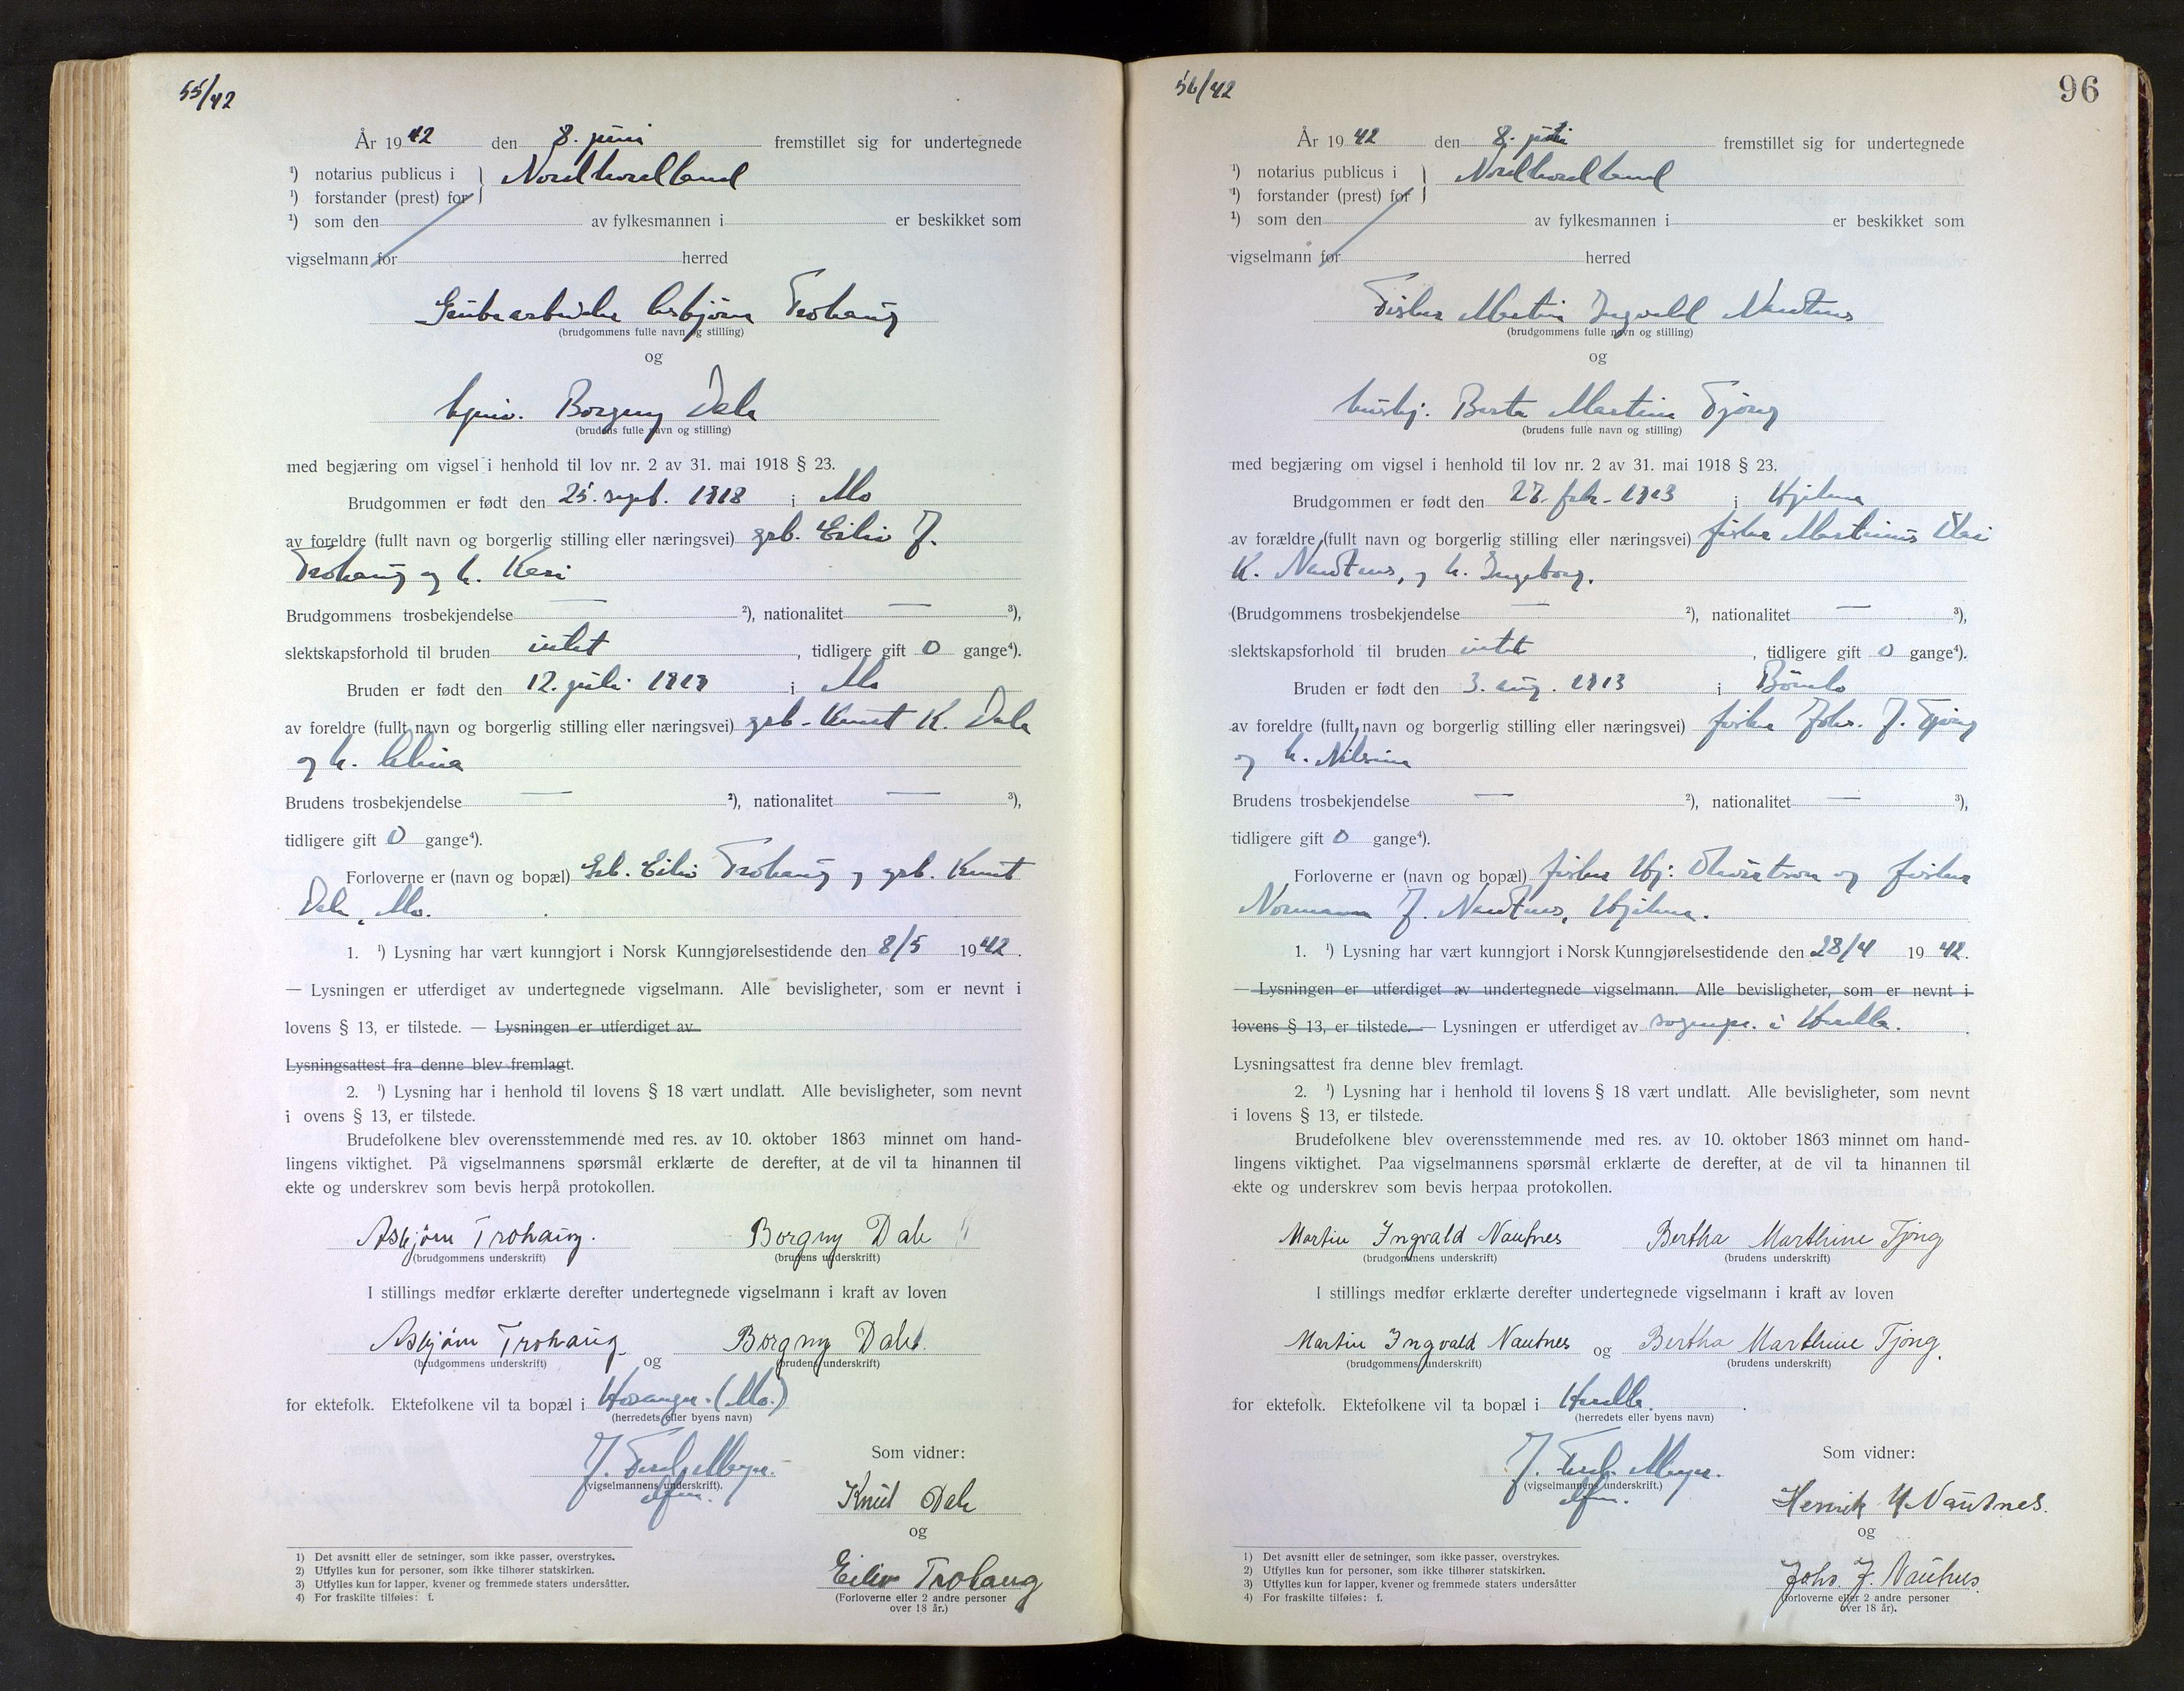 55/42
År 1942 den 8. juni fremstillet sig for undertegnede
¹) notarius publicus i } Nordhordland
¹) forstander (prest) for
¹) som den av fylkesmannen i er beskikket som
vigselmann for herred
Grubearbeider Asbjørn Trohaug
(brudgommens fulle navn og stilling)
og
Borgny Dale
(brudens fulle navn og stilling)
med begjæring om vigsel i henhold til lov nr. 2 av 31. mai 1918 § 23.
Brudgommen er født den 25. sept. 1918 i Mo
av foreldre (fullt navn og borgerlig stilling eller næringsvei) grb. Eiliv J.
Trohaug og h. Kari
Brudgommens trosbekjendelse — ²), nationalitet — ³),
slektskapsforhold til bruden intet, tidligere gift 0 gange⁴).
Bruden er født den 12. juli 1919 i Mo
av foreldre (fullt navn og borgerlig stilling eller næringsvei) grb. Knut K. Dale
og h. Alina
Brudens trosbekjendelse — ²), nationalitet — ³),
tidligere gift 0 gange⁴).
Forloverne er (navn og bopæl) Grb. Eiliv Trohaug og grb. Knut
Dale, Mo.
1. ¹) Lysning har vært kunngjort i Norsk Kunngjørelsestidende den 8/5 1942.
— Lysningen er utferdiget av undertegnede vigselmann. Alle bevisligheter, som er nevnt i
lovens § 13, er tilstede. — Lysningen er utferdiget av
Lysningsattest fra denne blev fremlagt.
2. ¹) Lysning har i henhold til lovens § 18 vært undlatt. Alle bevisligheter, som nevnt
i ovens § 13, er tilstede.
Brudefolkene blev overensstemmende med res. av 10. oktober 1863 minnet om hand-
lingens viktighet. På vigselmannens spørsmål erklærte de derefter, at de vil ta hinannen til
ekte og underskrev som bevis herpå protokollen.
Asbjørn Trohaug. Borgny Dale
(brudgommens underskrift) (brudens underskrift)
I stillings medfør erklærte derefter undertegnede vigselmann i kraft av loven
Asbjørn Trohaug og Borgny Dale.
(brudgommens underskrift) (brudens underskrift)
for ektefolk. Ektefolkene vil ta bopæl i Hosanger. (Mo.)
(herredets eller byens navn)
Som vidner:
J. Meyer.
(vigselmannens underskrift).
Knut Dale
og
Eiliv Trohaug
(Forloverne eller 2 andre personer
over 18 år.)
1) Det avsnitt eller de setninger, som ikke passer, overstrykes.
2) Utfylles kun for personer, som ikke tilhører statskirken.
3) Utfylles kun for lapper, kvener og fremmede staters undersåtter.
4) For fraskilte tilføies: f.
56/42
96
År 1942 den 8. juni fremstillet sig for undertegnede
¹) notarius publicus i } Nordhordland
¹) forstander (prest) for
¹) som den av fylkesmannen i er beskikket som
vigselmann for herred
Fisker Martin Ingvald Nautnes
(brudgommens fulle navn og stilling)
og
hushj. Berta Martine Tjöng
(brudens fulle navn og stilling)
med begjæring om vigsel i henhold til lov nr. 2 av 31. mai 1918 § 23.
Brudgommen er født den 27. febr. 1913 i Hjelme
av forældre (fullt navn og borgerlig stilling eller næringsvei) fisker Martinus Olai
K. Nautnes, og h. Ingeborg.
(Brudgommens trosbekjendelse — ²), nationalitet — ³),
slektskapsforhold til bruden intet, tidligere gift 0 gange⁴).
Bruden er født den 3. aug. 1913 i Bömlo
av foreldre (fullt navn og borgerlig stilling eller næringsvei) fisker Johs. J. Tjöng
og h. Nilsine
Brudens trosbekjendelse — ²), nationalitet — ³),
tidligere gift 0 gange⁴).
Forloverne er (navn og bopæl) fisker Hj. og fisker
Normann J. Nautnes, Hjelme.
1. ¹) Lysning har vært kunngjort i Norsk Kunngjørelsestidende den 28/4 1942.
— Lysningen er utferdiget av undertegnede vigselmann. Alle bevisligheter, som er nevnt i
lovens § 13, er tilstede. — Lysningen er utferdiget av sognepr. i Herdla.
Lysningsattest fra denne blev fremlagt.
2. ¹) Lysning har i henhold til lovens § 18 vært undlatt. Alle bevisligheter, som nevnt
i lovens § 13, er tilstede.
Brudefolkene blev overensstemmende med res. av 10. oktober 1863 minnet om hand-
lingens viktighet. Paa vigselmannens spørsmål erklærte de derefter, at de vil ta hinannen til
ekte og underskrev som bevis herpaa protokollen.
Martin Ingvald Nautnes Bertha Marthine Tjöng
(brudgommens underskrift) (brudens underskrift)
I stillings medfør erklærte derefter undertegnede vigselmann i kraft av loven
Martin Ingvald Nautnes og Bertha Marthine Tjöng.
(brudgommens underskrift) (brudens underskrift)
for ektefolk. Ektefolkene vil ta bopæl i Herdla.
(herredets eller byens navn)
Som vidner:
J. Meyer.
(vigselmannens underskrift.)
Henrik H Nautnes.
og
Johs. J. Nautnes.
(forloverne eller 2 andre personer
over 18 år).
1) Det avsnitt eller de setninger, som ikke passer, overstrykes.
2) Utfylles kun for personer, som ikke tilhører statskirken.
3) Utfylles kun for lapper, kvener og fremmede staters undersåtter
4) For fraskilte tilføies: f.